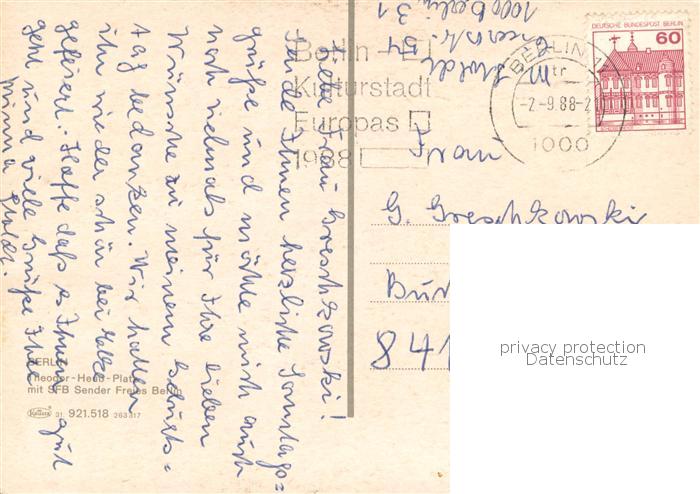 Liebe Frau Greschkowski!
Sende Ihnen herzliche Sonntags=
grüße und möchte mich auch
noch vielmals für Ihre lieben
Wünsche zu meinem Geburts=
tag bedanken. Wir haben
ihn wieder schön bei
gefeiert. Hoffe daß es Ihnen gut
geht und viele Grüße Ihre
Minna
BERLIN
Theodor-Heuss-Platz
mit SFB Sender Freies Berlin
Krüger 31 921.518 263 817
1000 Berlin 31
M
Berlin -
Kulturstadt
Europas
1988
BERLIN 12
-2.-9.88-2
1000
DEUTSCHE BUNDESPOST BERLIN
60
Frau
G. Greschkowski
841
privacy protection
Datenschutz